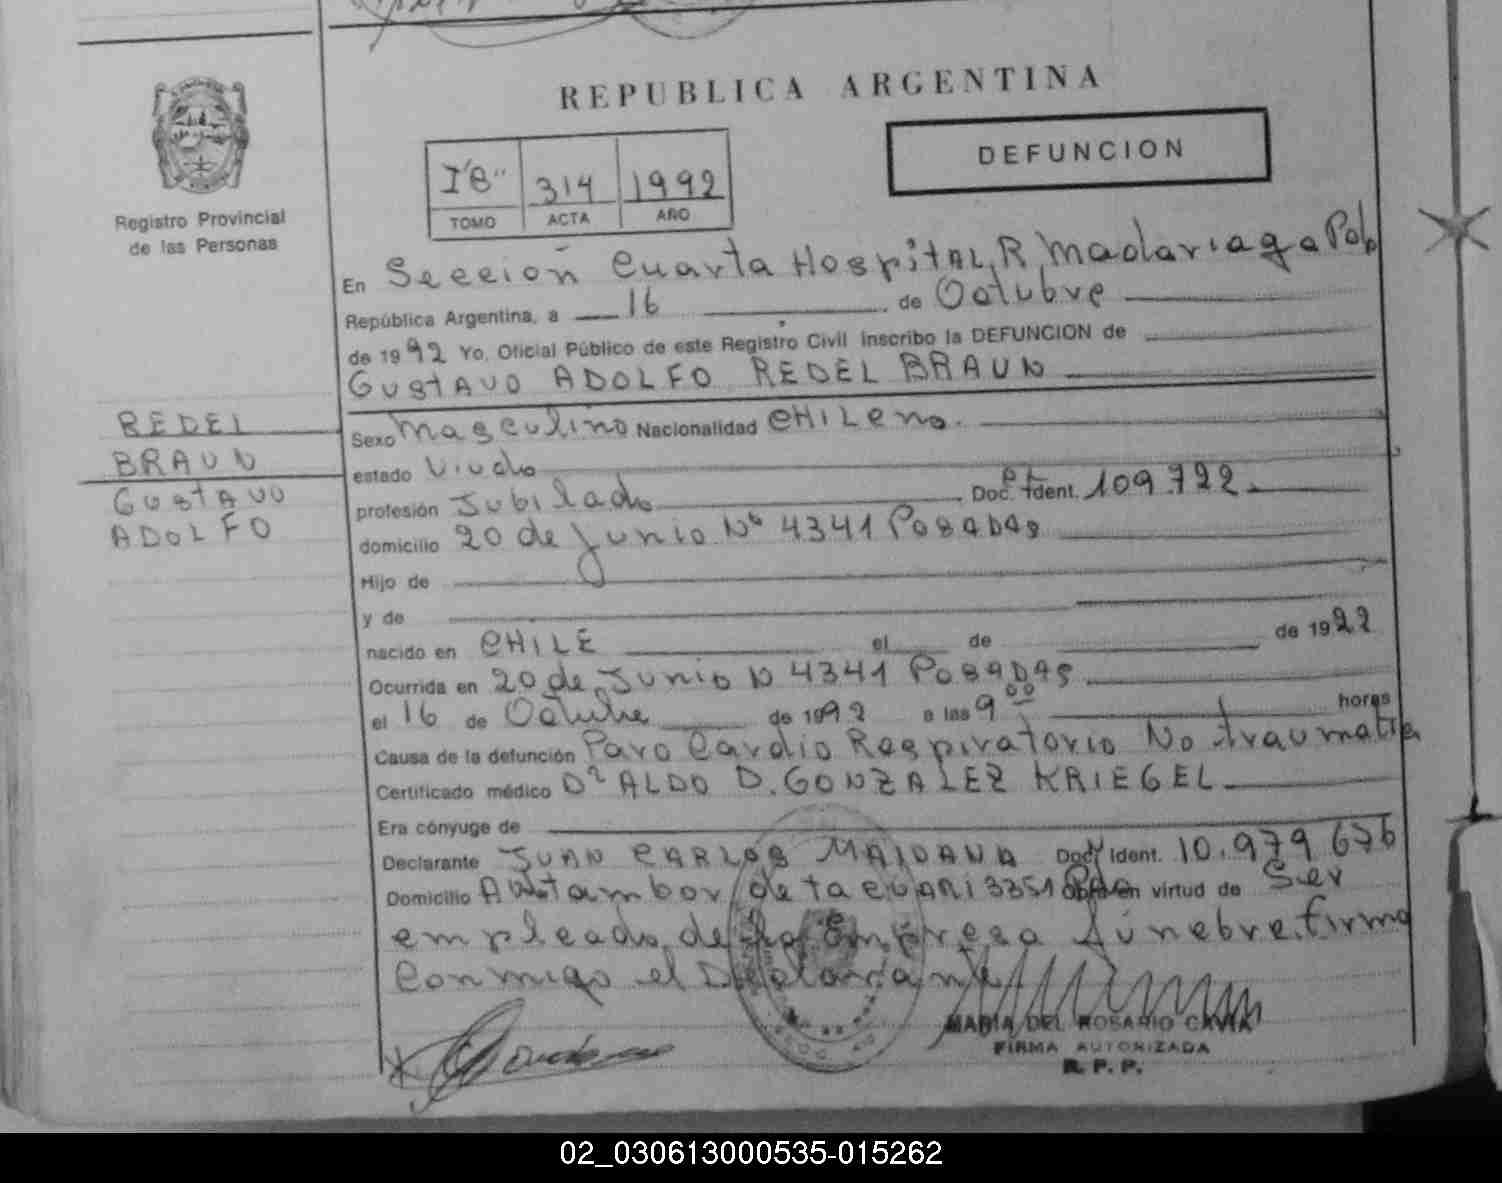 REPUBLICA ARGENTINA
DEFUNCION
I "B" 314 1992
TOMO ACTA AÑO
Registro Provincial
de las Personas
En Sección Cuarta Hospital R. Madariaga
República Argentina, a 16 de Octubre
de 1992 Yo, Oficial Público de este Registro Civil inscribo la DEFUNCION de
GUSTAVO ADOLFO REDEL BRAUN
REDEL
BRAUN
GUSTAVO
ADOLFO
Sexo Masculino Nacionalidad CHILENO.
estado Viudo
profesión Jubilado Doc. Ident. 109.722.
domicilio 20 de Junio Nº 4341 POSADAS
Hijo de
y de
nacido en CHILE el de de 1922
Ocurrida en 20 de Junio N 4341 POSADAS
el 16 de Octubre de 1992 a las 9 00 horas
Causa de la defunción Paro Cardio Respiratorio No traumatic
Certificado médico Dr ALDO D. GONZALEZ KRIEGEL
Era cónyuge de
Declarante JUAN CARLOS MAIDANA Doc. Ident. 10.979.676
Domicilio tambor de tacuari 3351 en virtud de Ser
empleado de la Empresa fúnebre. firma
Conmigo el Declarante
MARIA DEL ROSARIO CAVIA
FIRMA AUTORIZADA
R. P. P.
02_030613000535-015262